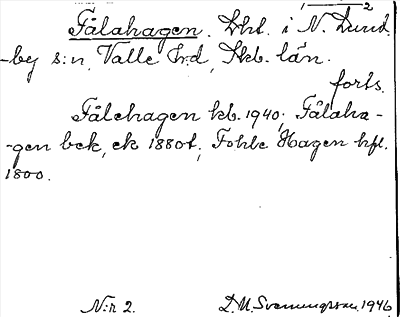 Fålahagen. Lht. i N. Lund-
-by s:n, Valle h:d, Skb. län.
forts.
Fålehagen kb. 1940; Fålaha-
-gen bek, ek 1880t; Fohle Hagen hfl.
1800.
N:r 2. D.M. Svenungsson 1946